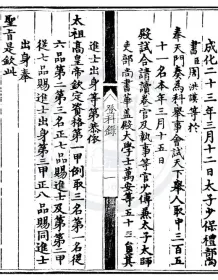 成化二十三年三月十二日太子少保禮
書臣周洪謨等於
奉天門奏為科舉事會試天下舉人取中三百五
十一名本年三月十五日
殿試合請讀卷官及執事等官少傅兼太子太師
吏部尚書華蓋殿大學士萬安等五十三員其
登科錄 一
進士出身等第恭依
太祖高皇帝欽定資格第一甲例取三名第一名從
六品第二第三名正七品賜進士及第第二甲
從七品賜進士出身第三甲正八品賜同進士
出身奉
聖旨是欽此